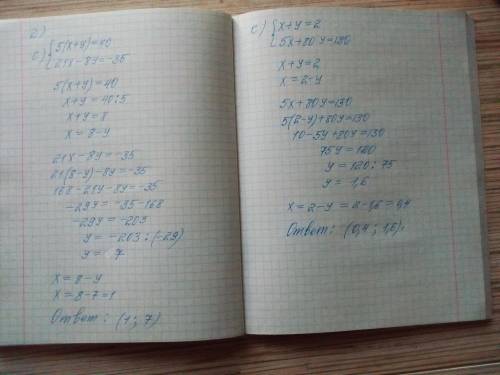 2)
с) { 5(x+y)=40
21x-8y=-35
5(x+y)=40
x+y=40:5
x+y=8
x=8-y
21x-8y=-35
21(8-y)-8y=-35
168-21y-8y=-35
-29y=-35-168
-29y=-203
y=-203:(-29)
y= 7
x=8-y
x=8-7=1
Ответ: (1; 7)
с) { x+y=2
5x+80y=130
x+y=2
x=2-y
5x+80y=130
5(2-y)+80y=130
10-5y+80y=130
75y=120
y=120:75
y=1,6
x=2-y=2-1,6=0,4
Ответ: (0,4; 1,6).